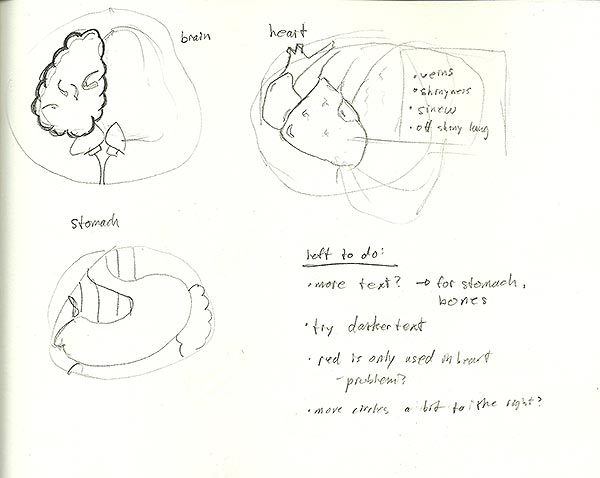 brain
heart
• veins
• shinyness
• sinew
• off shiny
stomach
left to do:
• more text? → for stomach,
bones
• try darker text
• red is only used in heart
- problem?
• move circles a bit to the right?